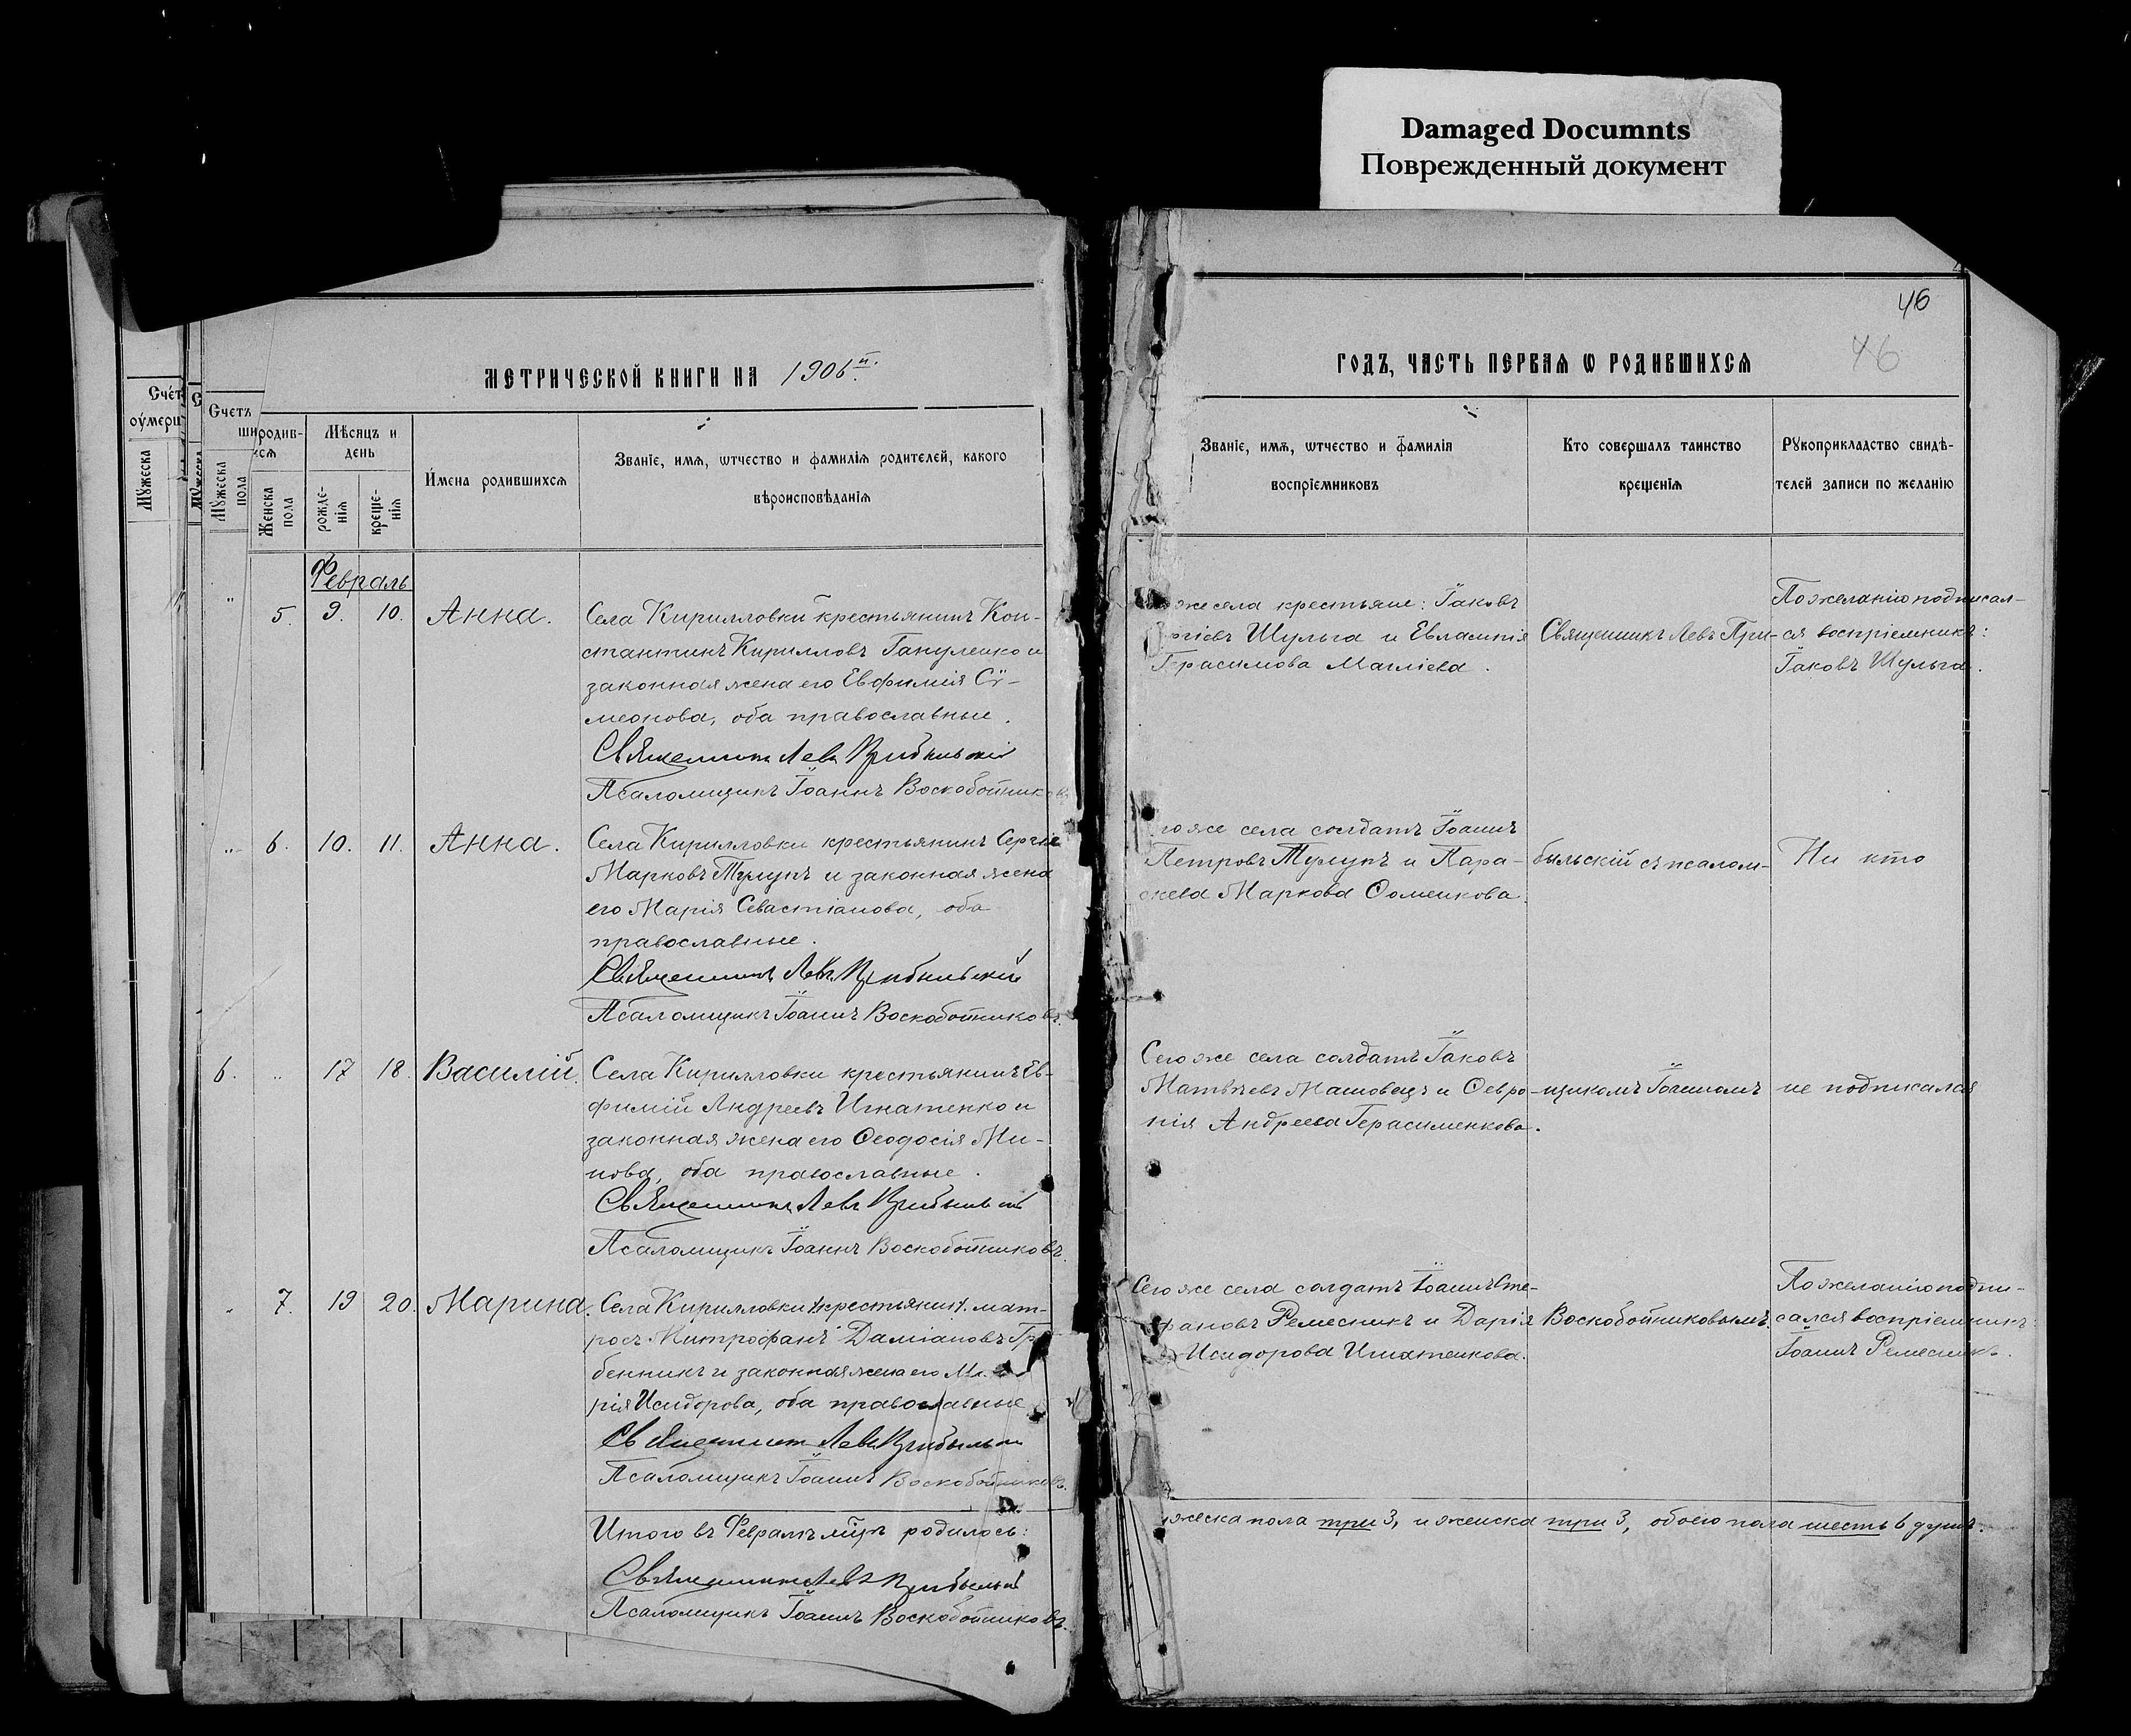 Damaged Documnts
Поврежденный документ
46
46
МЕТРИЧЕСКОЙ КНИГИ НА 1906й.
ГОДЪ, ЧАСТЬ ПЕРВАѦ Ѡ РОДИВШИХСѦ
Счет
оумерш
Мꙋжеска
Счетъ
ши
родив-
хсѧ
Мꙋжеска
пола
Женска
пола
Мѣсяцъ и
день
рожде-
нїѧ
креще-
нїѧ
Имена родившихсѧ
Званїе, имѧ, ѡтчество и фамилїѧ родителей, какого
вѣроисповѣданїѧ
Званїе, имѧ, ѡтчество и фамилїѧ
воспрїемниковъ
Кто совершалъ таинство
крещенїѧ
Рꙋкоприкладство свидѣ-
телей записи по желанїю
Февраль
" 5. 9. 10. Анна.
Села Кирилловки крестьянинъ Кон-
стантинъ Кирилловъ Гануленко и
законная жена его Евфимія Сѵ-
меонова, оба православные.
Священникъ Левъ Прибыльскій
Псаломщикъ Іоаннъ Воскобойниковъ
же села крестьяне: Іаковъ
Шульга и Евлампія
Герасимова
Священникъ Левъ При-
По желанію подписал-
ся воспріемникъ:
Іаковъ Шульга.
" 6. 10. 11. Анна.
Села Кирилловки крестьянинъ Сергій
Марковъ Тулупъ и законная жена
его Марія Севастіанова, оба
православные.
Священникъ Левъ Прибыльскій
Псаломщикъ Іоаннъ Воскобойниковъ.
гоже села солдатъ Іоаннъ
Петровъ Тулупъ и Пара-
скева Маркова Фоменкова.
быльскій съ псалом-
Ни кто
6. " 17 18. Василій.
Села Кирилловки крестьянинъ Ев-
фимій Андреевъ Игнатенко и
законная жена его Феодосія Ми-
нова, оба православные.
Священникъ Левъ Прибыльскій
Псаломщикъ Іоаннъ Воскобойниковъ
Сегоже села солдатъ Іаковъ
Матвѣевъ Машовецъ и Февро-
нія Андреева Герасименкова.
щикомъ Іоанномъ
не подписался
" 7. 19 20. Марина.
Села Кирилловки /крестьянин/. мат-
росъ Митрофанъ Даміановъ Гре
бенникъ и законная жена его Ма
рія Исидорова, оба православные
Священникъ Левъ Прибыльскій
Псаломщикъ Іоаннъ Воскобойниковъ.
Сегоже села солдатъ Іоаннъ Сте-
фановъ Ремесникъ и Дарія
Исидорова Игнатенкова.
Воскобойниковымъ.
По желанію подпи-
сался воспріемникъ:
Іоаннъ Ремесникъ.
Итого въ Февралѣ мцѣ родилось:
жеска пола три 3, и женска три 3, обоего пола шесть 6 душъ.
Священникъ Левъ Прибыльскій
Псаломщикъ Іоаннъ Воскобойниковъ.